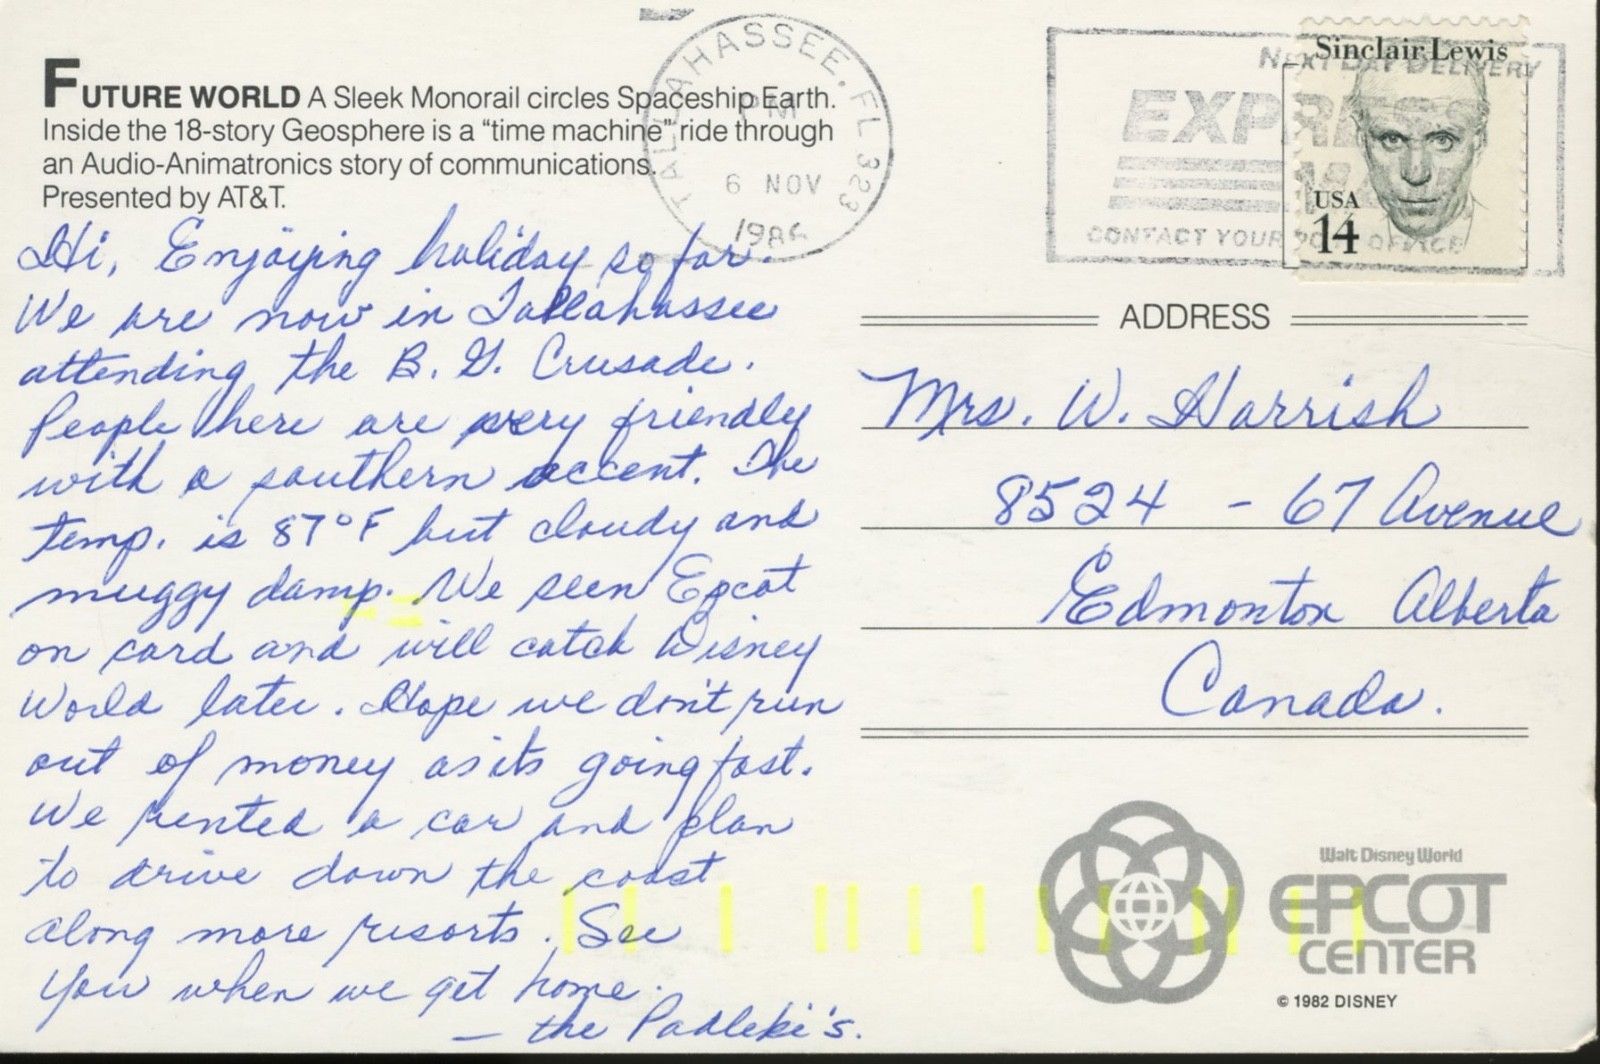 FUTURE WORLD A Sleek Monorail circles Spaceship Earth.
Inside the 18-story Geosphere is a “time machine” ride through
an Audio-Animatronics story of communications.
Presented by AT&T.
TALLAHASSEE, FL 323
PM
6 NOV
1986
NEXT DAY DELIVERY
EXPRESS
MAIL
CONTACT YOUR POST OFFICE
Sinclair Lewis
USA
14
Hi, Enjoying holiday so far.
We are now in Tallahassee
attending the B. G. Crusade.
People here are very friendly
with a southern accent. The
temp. is 87°F but cloudy and
muggy damp. We seen Epcot
on card and will catch Disney
World later. Hope we don't run
out of money as its going fast.
We rented a car and plan
to drive down the coast
along more resorts. See
you when we get home.
— the Padleki's.
ADDRESS
Mrs. W. Harrish
8524 - 67 Avenue
Edmonton Alberta
Canada.
Walt Disney World
EPCOT
CENTER
© 1982 DISNEY